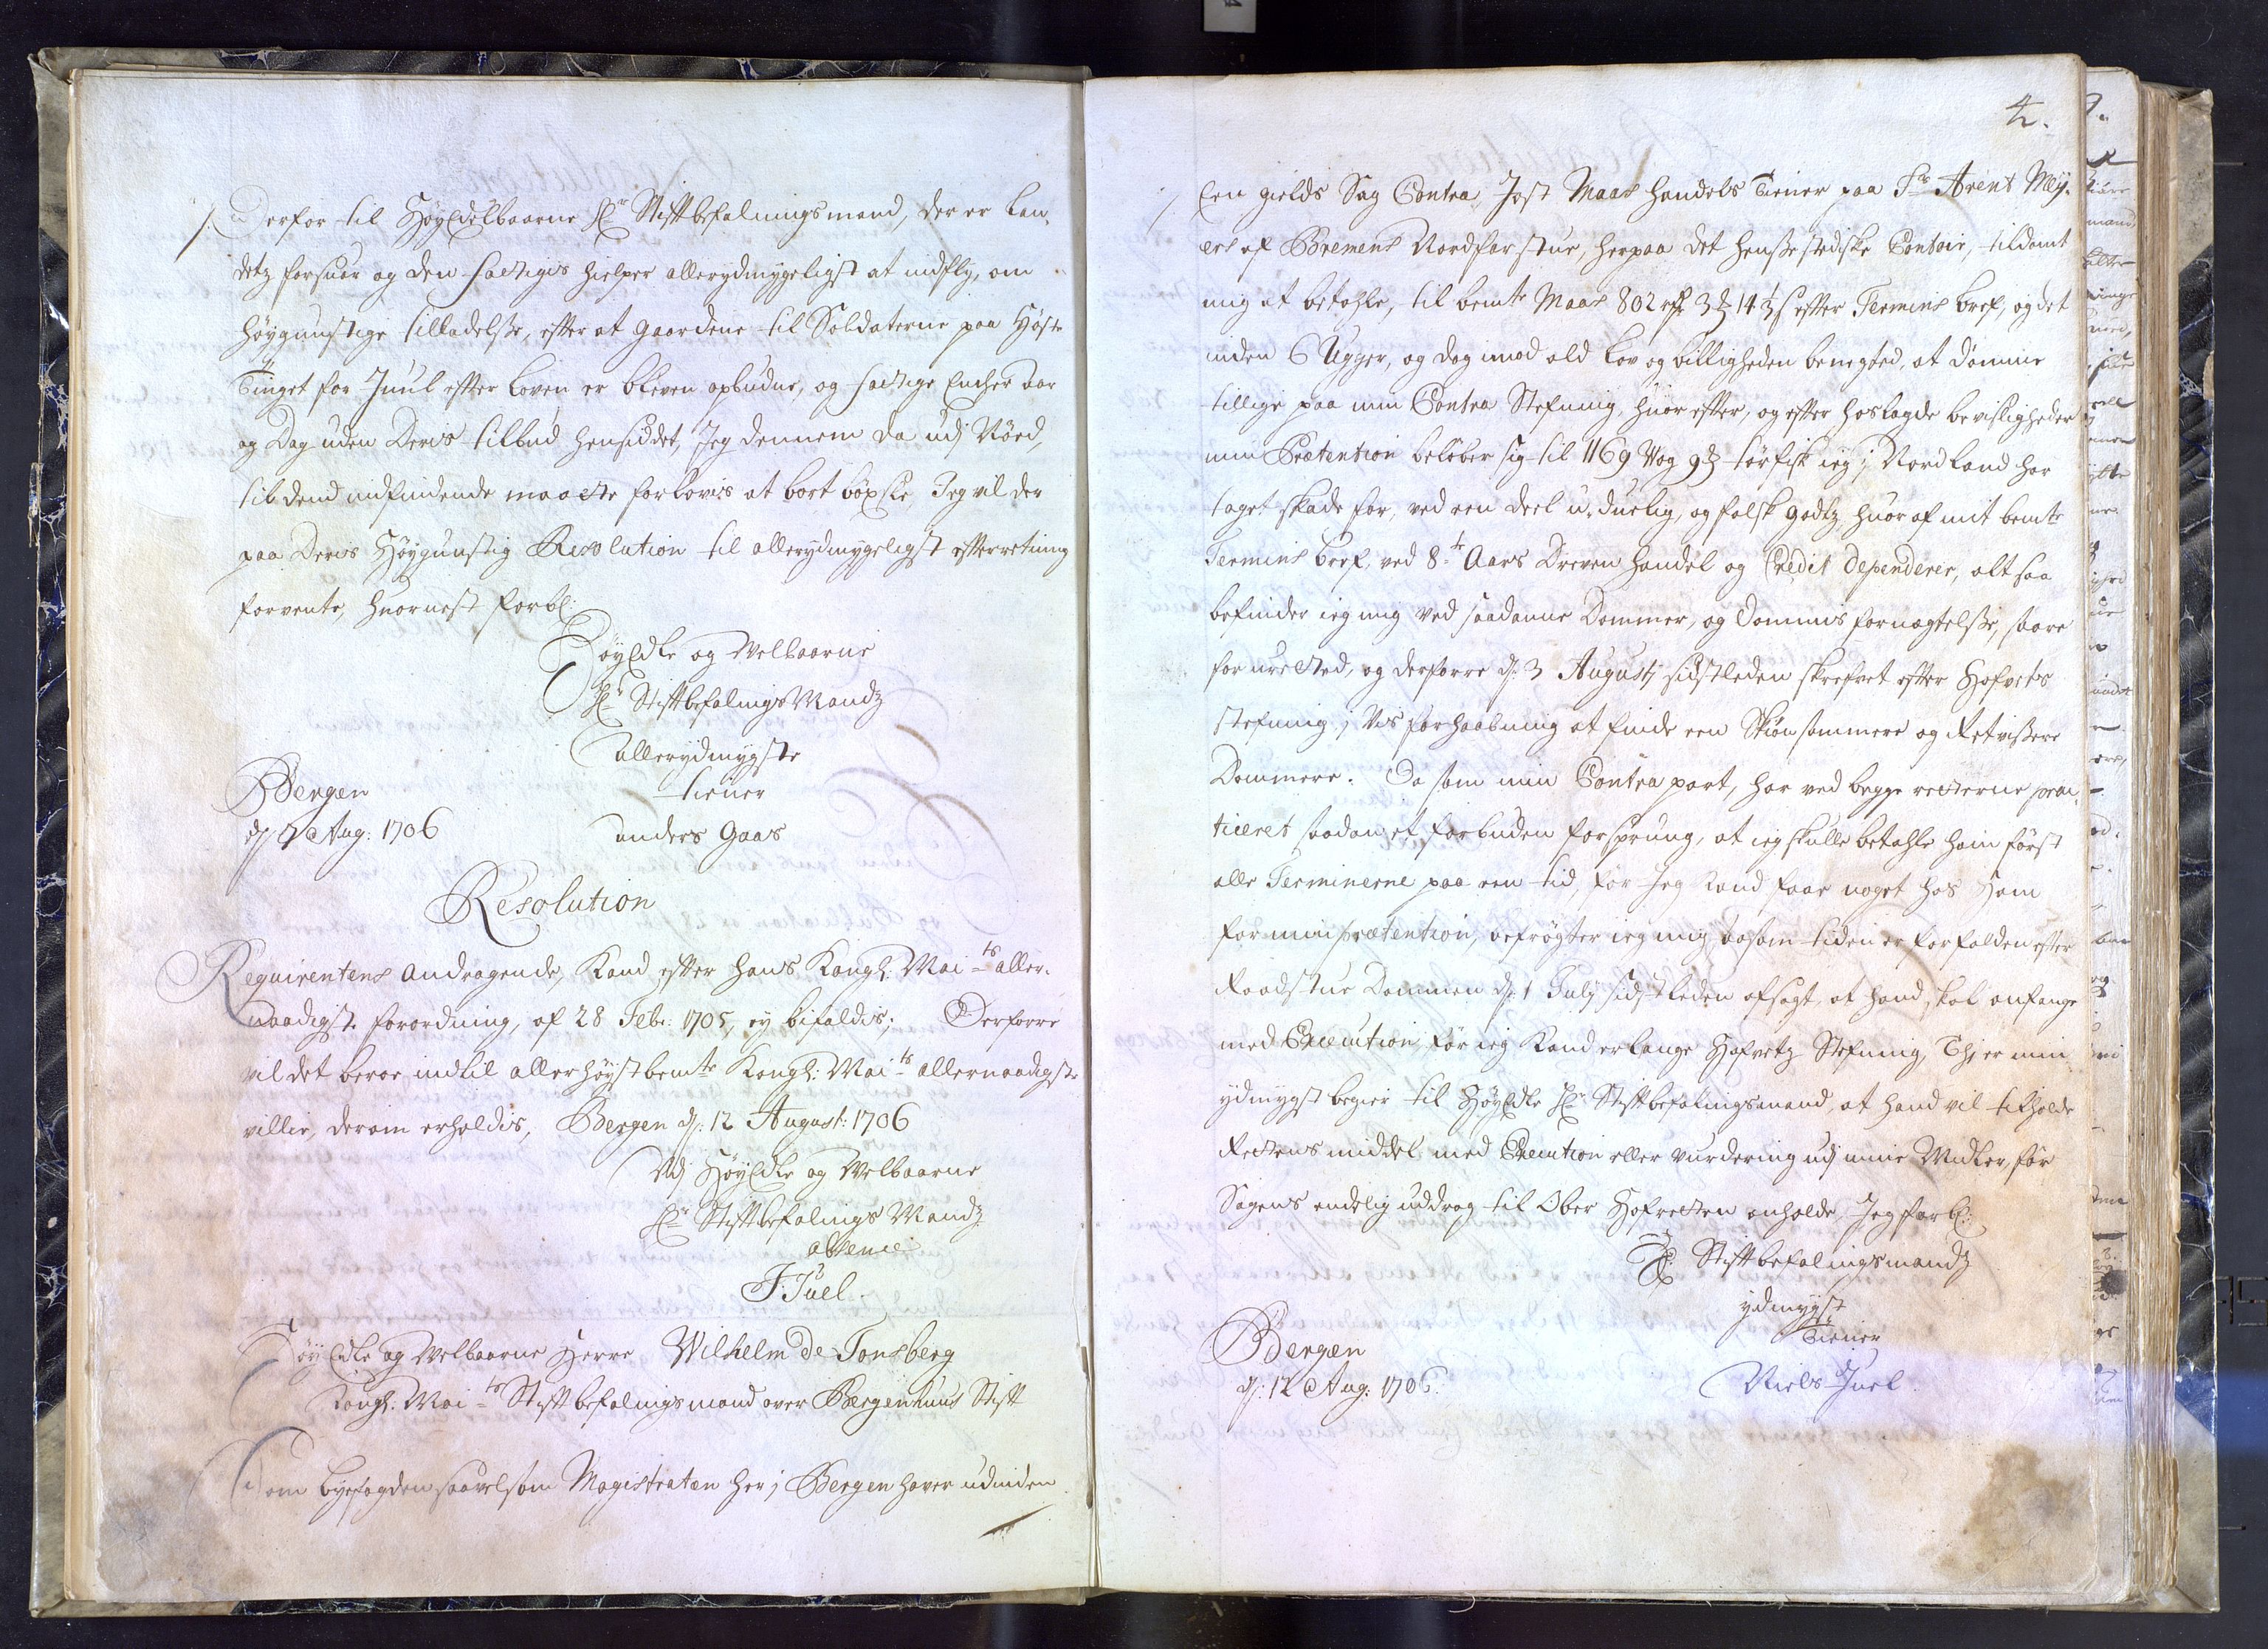 Derfor til HøyEdelbaarne Hr Stiftbefalningsmand, der er Lan-
detz forsuar og den fattigis hielper allerydmygeligst at indfly, om
høygunstige tilladelsse, efter at gaardene til Soldaterne paa Høste
Tinget for Juul efter loven er bleven opbudne, og fattige Encher aar
og Dag uden Deris tilbud hensiddet, Jeg dennem da udj Nød,
til dend indfindende maatte forlovis at bort böxsle, Jeg vil der
paa Deris Høygunstig Resolution til allerydmygeligst efterretning
forvente, huornest forbl:
HøyEdle og Velbaarne
Hr StiftbefalingsMandz
allerydmygste
tiener
Anders Gaas
Bergen
dj 7 Aug: 1706
Resolution
Requirentens Andragende, Kand efter hans Kongl: Maits aller-
naadigste forordning, af 28 Febr: 1705, ey bifaldis; Derforre
vil det beroe indtil allerhøystbemte Kongl: Maits allernaadigste
villie, derom erholdis, Bergen dj: 12 August: 1706
Udj HøyEdle og Velbaarne
Hr Stiftbefalings Mandz
absence
J: Juel.
HøyEdle og Velbaarne Herre Wilhelm de Tonsberg
Kongl: Maits Stiftbefalingsmand over Bergenhuus Stift
Som byefogden saavelsom Magistraten her j Bergen haver udinden
4.
Een gields Sag Contra Jost Maas handels Tiener paa Sr Arent Mey-
ers af Bremens Nordfar stue, her paa det hensestediske Contoir, tildømt
mig at betahle, til bemte Maas 802 rdr 3 14 ½ s efter Termins bref, og det
inden 6 Ugger, og dog imod ald lov og billigheden benegted, at dømme
tillige paa min Contra Stefning, huor efter, og efter hoslagde bevisligheder
min Prætention beløber sig til 1169 Wog 9 tørfisk ieg j Nordland har
taget skade for, ved een deel u-duelig, og falsk godtz, huor af mit bemte
Termins bref, ved 8te Aars Dreven handel og Credit dependerer, alt saa
befinder ieg mig ved saadanne Dommer, og Dommis fornegtelsse, saare
forurettet, og derforre dj: 3 Augustj sidstleden skrefvet efter Hofrets
stefning, j Vis forhaabning at finde een Skiønsommere og Retvissere
Dommere. Da som min Contrapart, har ved begge retterne prac-
ticeret saadan et forbuden forsprung, at ieg skulle betahle ham først
alle Terminerne paa een tid, før Jeg Kand faae noget hos Ham
for min prætention, befrøgter ieg mig, ligesom tiden er forfalden efter
Raadstue Dommen dj: 1 Julij sidstleden afsagt, at hand skal anfange
med Execution, før ieg Kand erlange Hofretz Stefning, Thj er min
ydmygst begier til HøyEdle Hr Stiftbefalingsmand, at hand vil tilholde
Rettens middel med Execution eller vurdering udj mine Midler, før
Sagens endelig uddrag til Ober Hofretten anholde, Jeg forbl:
Hr Stiftbefalingsmandz
ydmygst
Tiener
Niels Juel
Bergen
dj: 12 Aug: 1706.